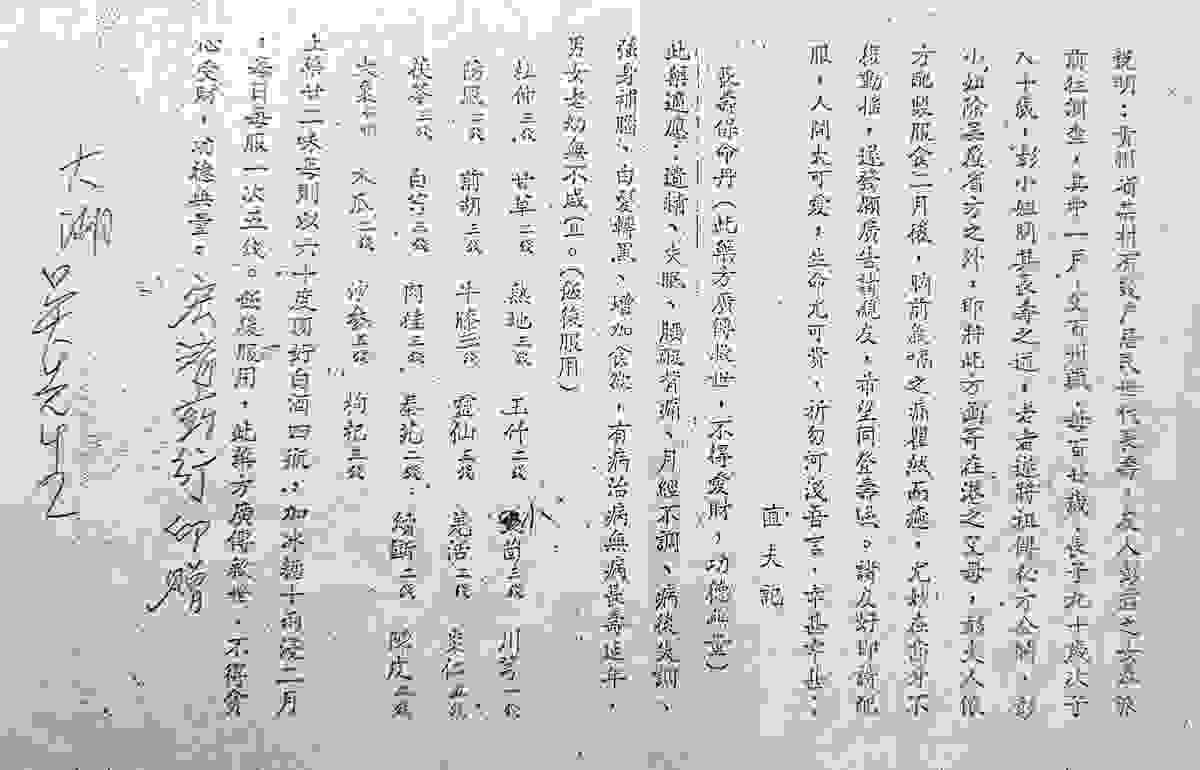 說明：貴州省荔村有數戶居民世代長壽，友人彭君之女公派
前往調查，其中一戶，父百卅歲，母百廿歲，長子九十歲次子
八十歲，彭小姐問其長壽之道，長者遂將祖傳秘方公開，彭
小姐除呈省方之外，即將此方函寄在港之父母，彭夫人依
方配製服食二月後，胸前氣喘之病霍然而癒，尤妙在
，遂
服，人間大可愛，生命尤可貴，祈勿河漢吾言，幸甚幸甚。
直夫記
長壽保命丹（此藥方廣傳救世，不得愛財，功德無量）
此藥適應：遺精、失眠、腰酸背痛、月經不調、病後失調、
強身補腦、白髮轉黑、增加食慾，有病治病無病長壽延年，
男女老幼無不咸宜。（飯後服用）
杜仲二錢 甘草二錢 熟地三錢 玉竹二錢 小茴三錢 川芎一錢
防風二錢 前胡二錢 牛膝二錢 靈仙二錢 羌活二錢 棗仁五錢
茯苓二錢 白芍二錢 肉桂二錢 秦艽二錢 續斷二錢 陳皮二錢
大棗 木瓜二錢 沙參五錢 枸杞三錢
上料廿二味另則以六十度頂好白酒四瓶，加冰糖十兩浸二月
，每日每服一次五錢。飯後服用，此藥方廣傳救世，不得貪
心愛財，功德無量。宏濟藥行印贈
大湖 吳先生